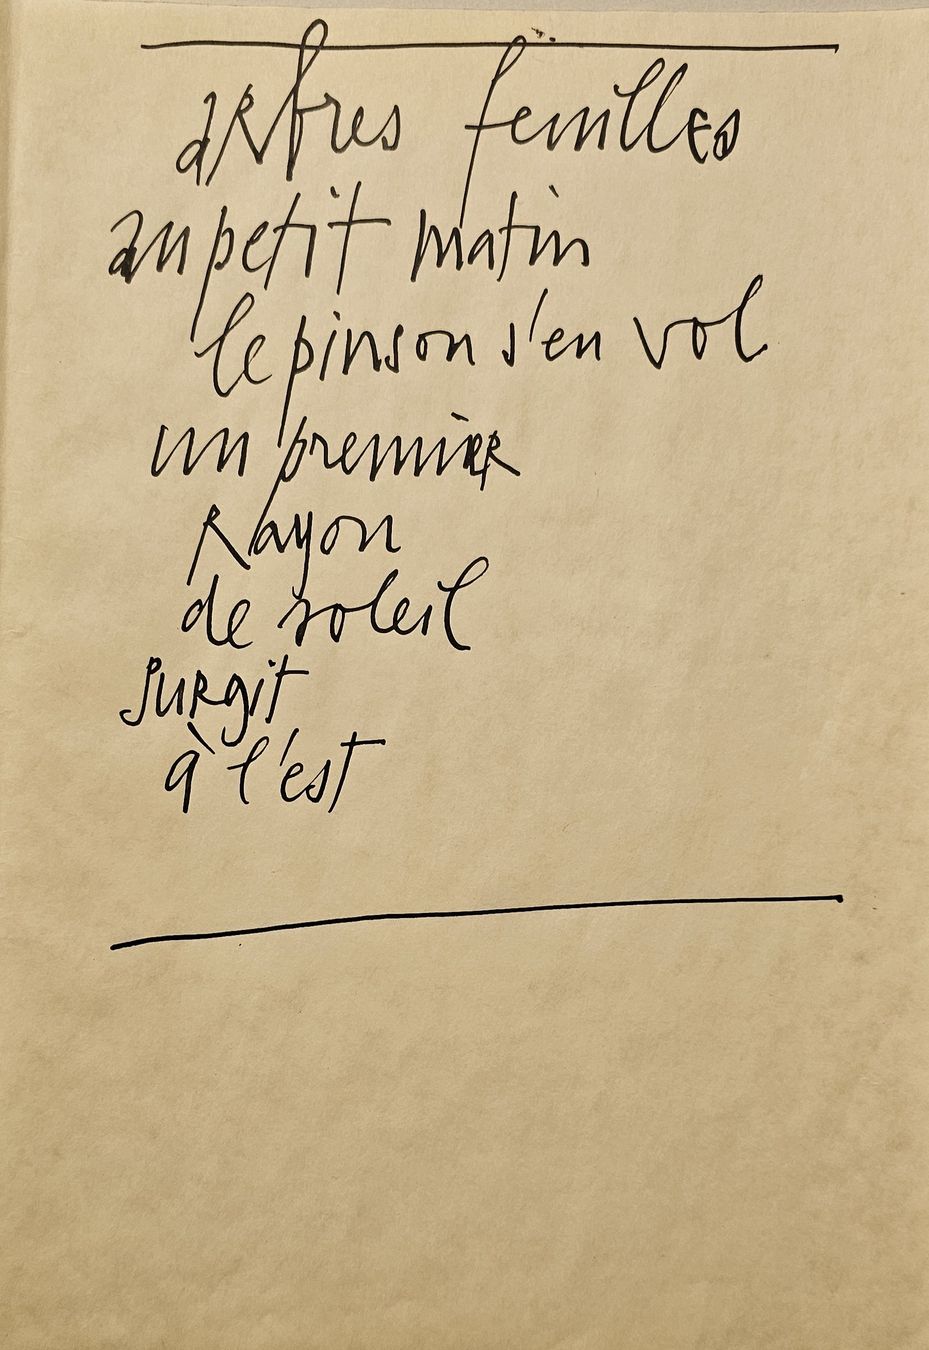 arbres feuilles
au petit matin
le pinson s'en vol
un premier
Rayon
de soleil
surgit
à l'est